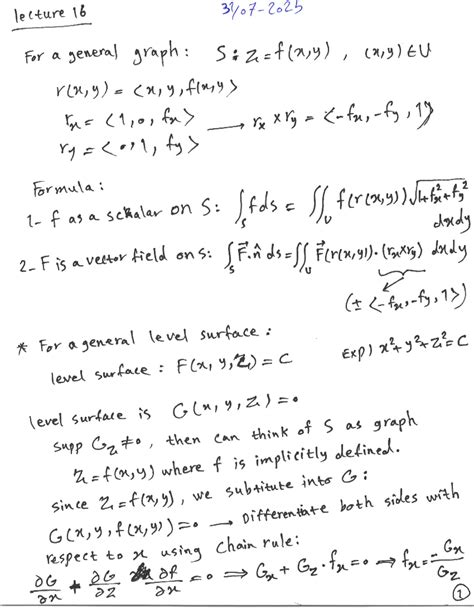 lecture 16
31/07-2025
For a general graph: S: z = f(x,y) , (x,y) ∈ U
r(x,y) = <x, y, f(x,y)>
r_x = <1, 0, f_x>
→ r_x × r_y = <-f_x, -f_y, 1>
r_y = <0, 1, f_y>
Formula:
1- f as a scalar on S: ∫_S f ds = ∬_U f(r(x,y)) √(1+f_x²+f_y²) dxdy
2- F is a vector field on s: ∫_S F⃗.n̂ ds = ∬_U F⃗(r(x,y)).(r_x×r_y) dxdy
(± <-f_x, -f_y, 1>)
* For a general level surface:
level surface : F(x, y, z) = C
Exp) x²+y²+z²=C
level surface is G(x, y, z) = 0
supp G_z ≠ 0, then can think of S as graph
z = f(x,y) where f is implicitly defined.
since z = f(x,y), we substitute into G:
G(x, y, f(x,y)) = 0 → Differentiate both sides with
respect to x using Chain rule:
∂G/∂x + ∂G/∂z ∂f/∂x = 0 ⇒ G_x + G_z . f_x = 0 ⇒ f_x = -G_x/G_z
1